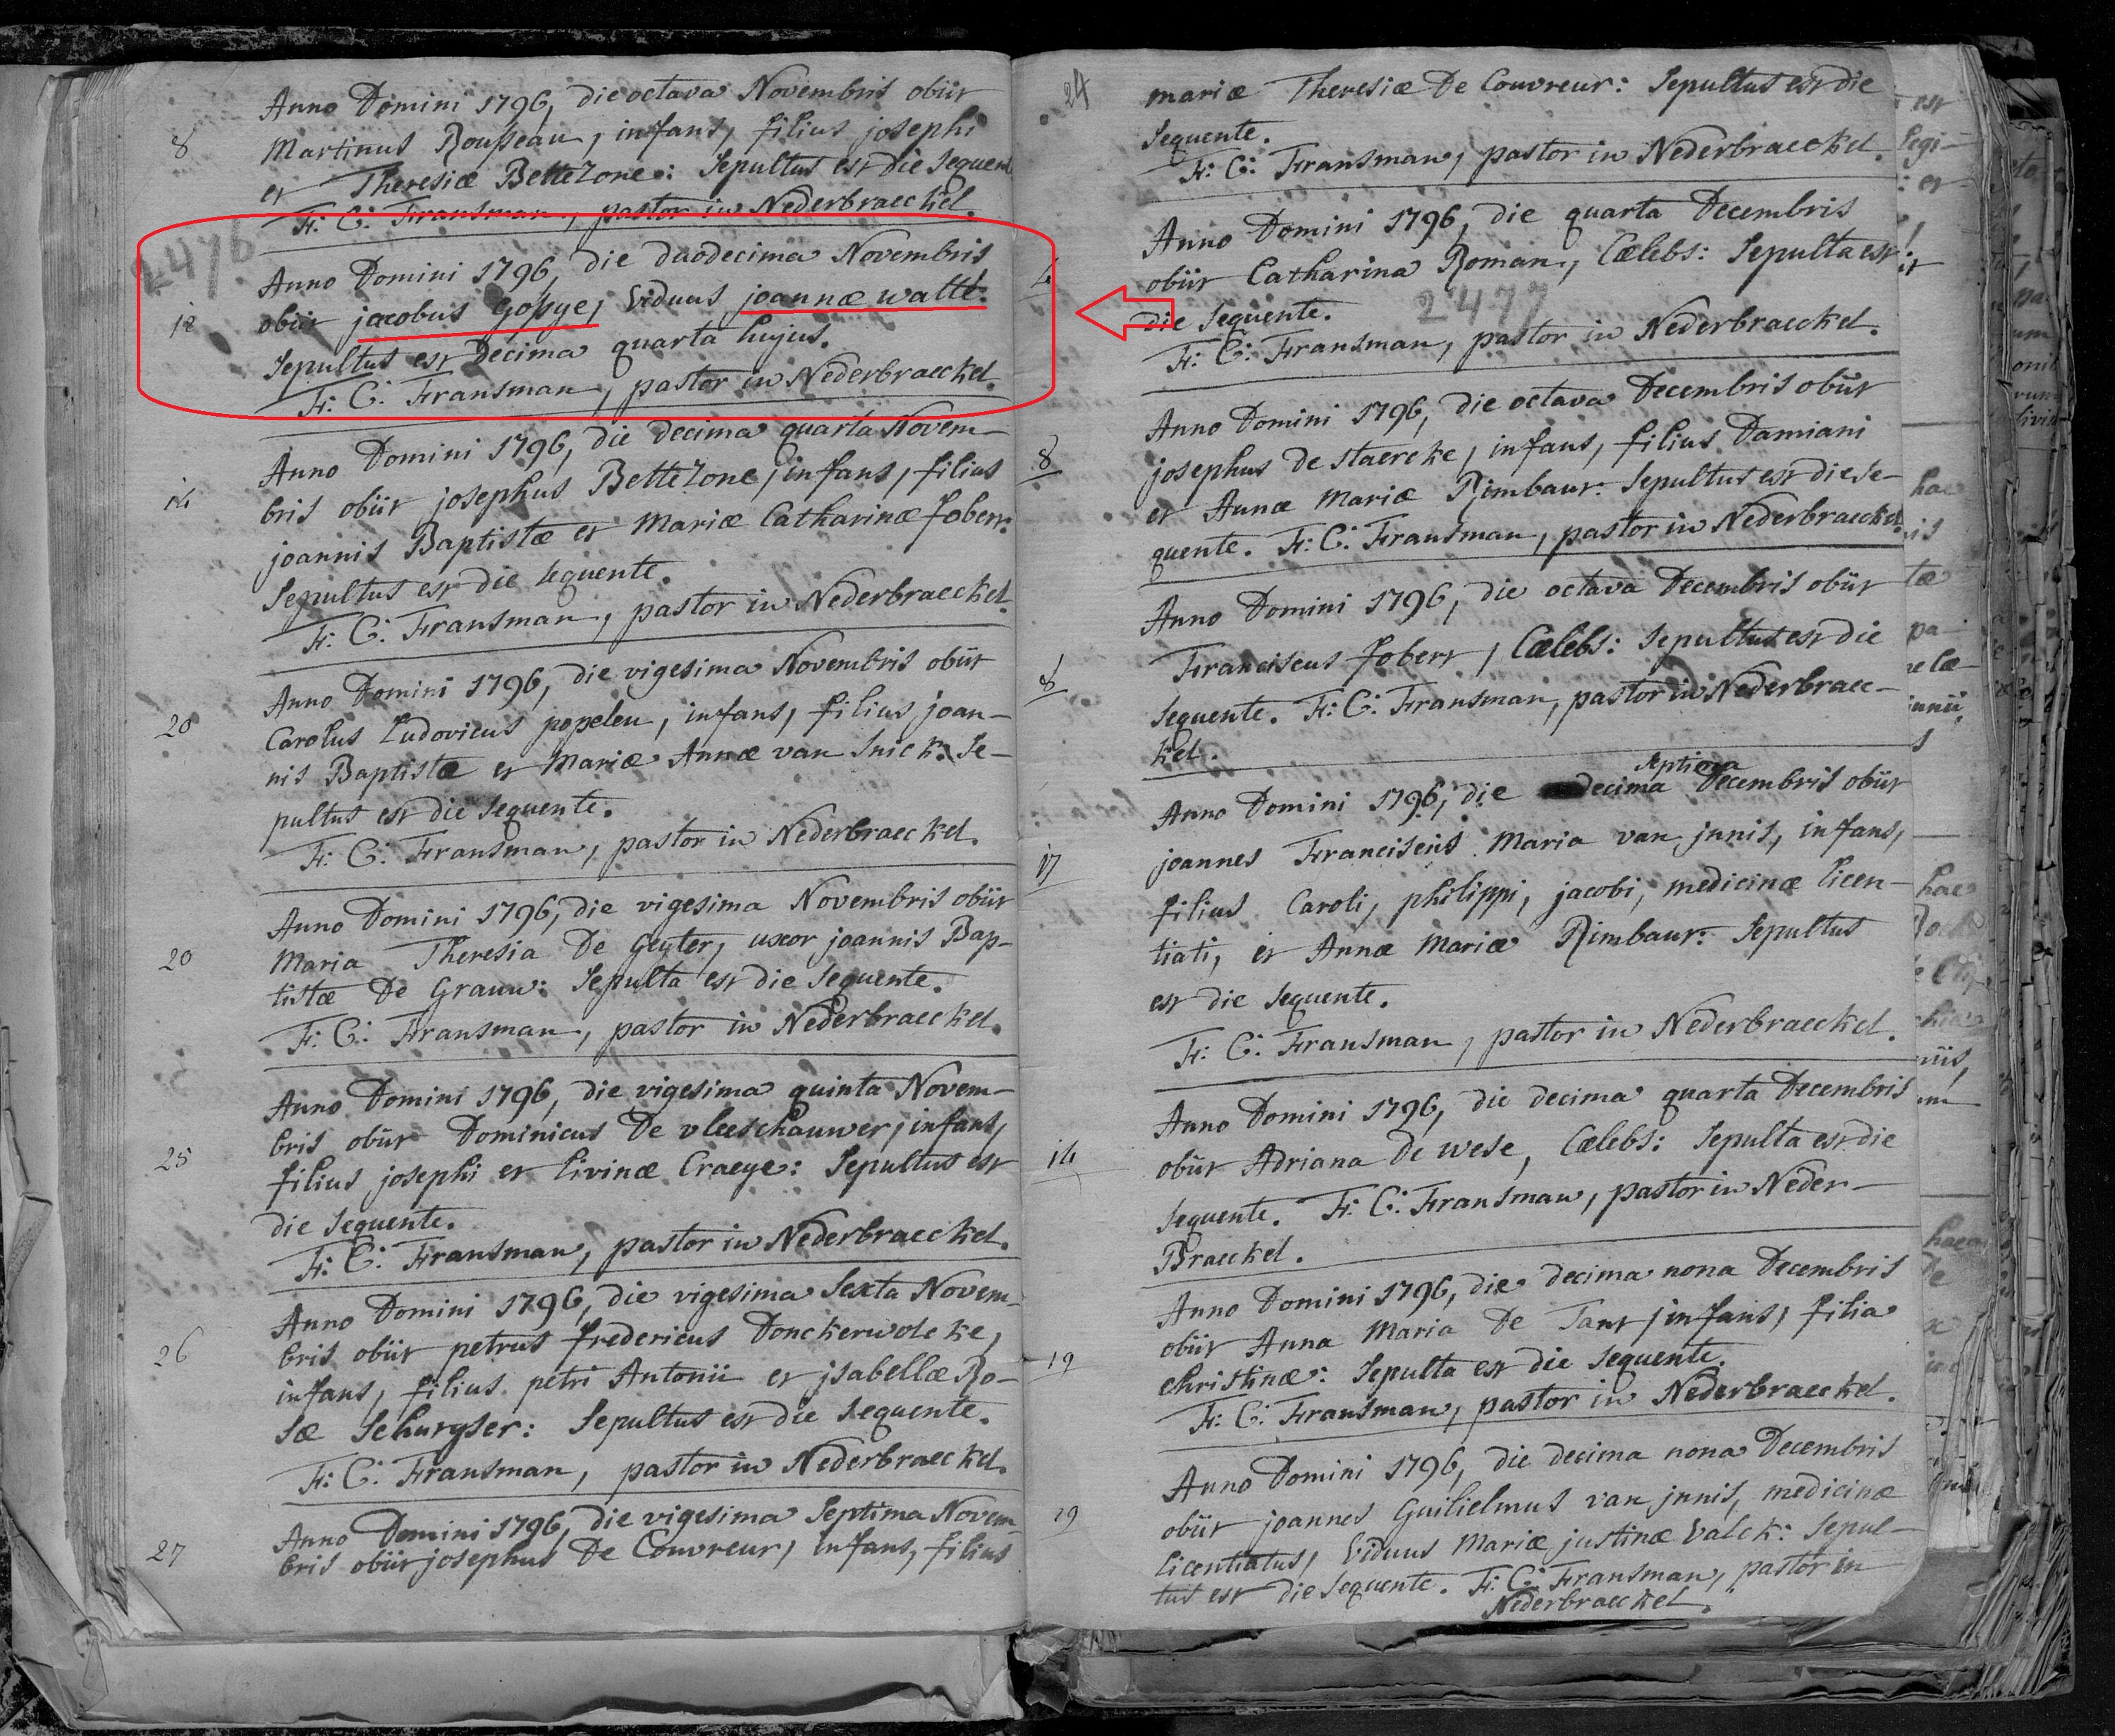 2476
8
Anno Domini 1796, die octava Novembris obiit
Martinus Rousseau, infans, filius josephi
et Theresiæ BetteZone: Sepultus est die sequen
F: C: Fransman, pastor in Nederbraeckel.
12
Anno Domini 1796, die duodecima Novembris
obiit jacobus Gossye, Viduus joannæ watté.
Sepultus est decima quarta hujus.
F: C: Fransman, pastor in Nederbraeckel.
14
Anno Domini 1796, die decima quarta Novem-
bris obiit josephus BetteZone, infans, filius
joannis Baptistæ et Mariæ Catharinæ fobert.
Sepultus est die sequente.
F: C: Fransman, pastor in Nederbraeckel.
20
Anno Domini 1796, die vigesima Novembris obiit
Carolus Ludovicus popeleu, infans, filius joan-
nis Baptistæ et Mariæ Annæ van Snick. Se-
pultus est die sequente.
F: C: Fransman, pastor in Nederbraeckel.
20
Anno Domini 1796, die vigesima Novembris obiit
Maria Theresia De Geyter, uxor joannis Bap-
tistæ De Grauw: Sepulta est die sequente.
F: C: Fransman, pastor in Nederbraeckel.
25
Anno Domini 1796, die vigesima quinta Novem-
bris obiit Dominicus De vleeschauwer, infans,
filius josephi et Livinæ Craeye: Sepultus est
die sequente.
F: C: Fransman, pastor in Nederbraeckel.
26
Anno Domini 1796, die vigesima Sexta Novem-
bris obiit petrus fredericus Donckerwolcke,
infans, filius petri Antonii et jsabellæ Ro-
sæ Schuryser: Sepultus est die sequente.
F: C: Fransman, pastor in Nederbraeckel.
27
Anno Domini 1796, die vigesima Septima Novem-
bris obiit josephus De Couvreur, infans, filius
24
mariæ Theresiæ De Couvreur: Sepultus est die
sequente.
F: C: Fransman, pastor in Nederbraeckel.
4
Anno Domini 1796, die quarta Decembris
obiit Catharina Roman, Cælebs: Sepulta est
die sequente.
2477
F: C: Fransman, pastor in Nederbraeckel.
8
Anno Domini 1796, die octava Decembris obiit
josephus De staercke, infans, filius Damiani
et Annæ Mariæ Rimbaut: Sepultus est die se-
quente. F: C: Fransman, pastor in Nederbraeckel.
8
Anno Domini 1796, die octava Decembris obiit
Franciscus fobert, Cælebs: Sepultus est die
sequente. F: C: Fransman, pastor in Nederbraec-
kel.
septima
17
Anno Domini 1796, die decima Decembris obiit
joannes Franciscus Maria van jnnis, infans,
filius Caroli, philippi, jacobi, medicinæ licen-
tiati, et Annæ Mariæ Rimbaut: Sepultus
est die sequente.
F: C: Fransman, pastor in Nederbraeckel.
14
Anno Domini 1796, die decima quarta Decembris
obiit Adriana De wese, Cælebs: Sepulta est die
sequente. F: C: Fransman, pastor in Neder-
Braeckel.
19
Anno Domini 1796, die decima nona Decembris
obiit Anna Maria De Tant, infans, filia
christinæ: Sepulta est die sequente.
F: C: Fransman, pastor in Nederbraeckel.
19
Anno Domini 1796, die decima nona Decembris
obiit joannes Guilielmus van jnnis, medicinæ
licentiatus, Viduus Mariæ justinæ Valck: Sepul-
tus est die sequente. F: C: Fransman, pastor in
Nederbraeckel.